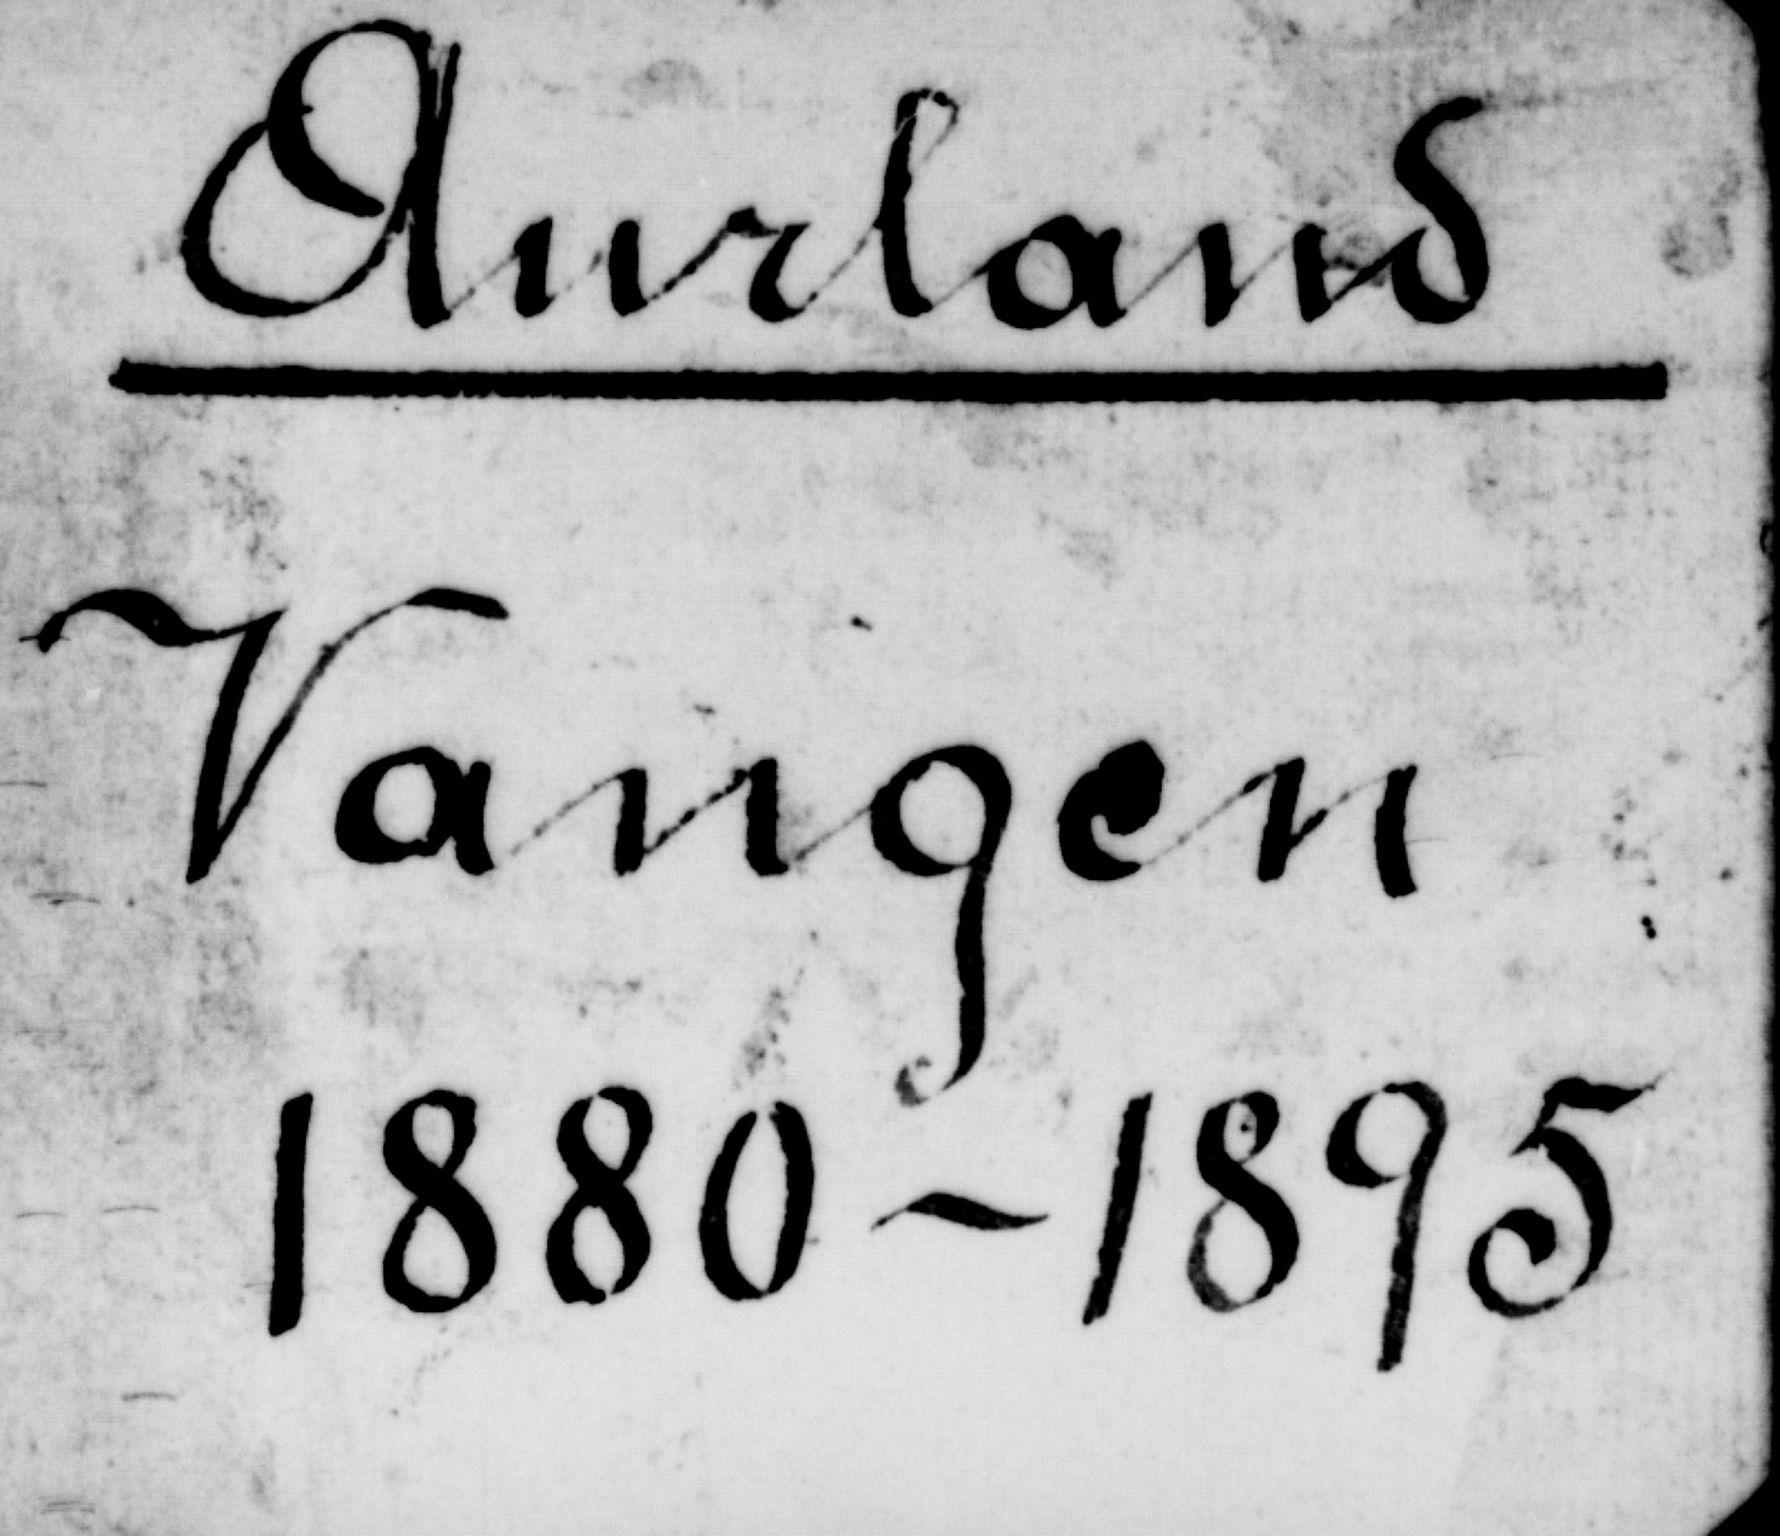 Aurland
Vangen
1880~1895